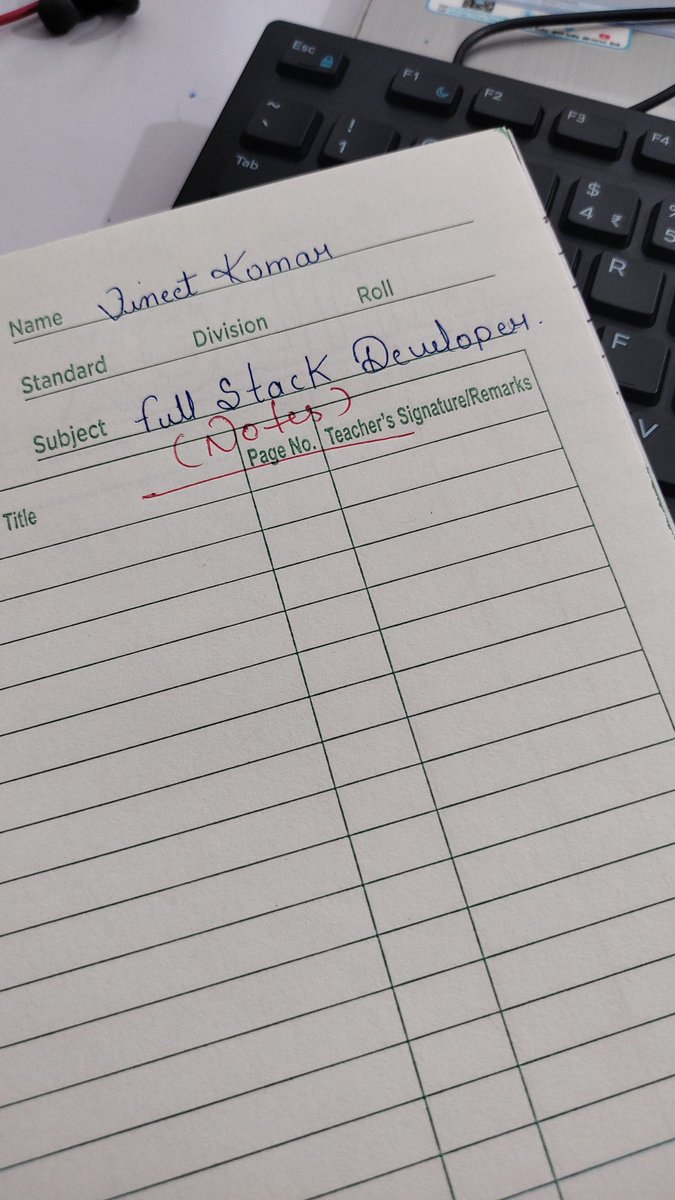 Esc
F1
F2
F3
F4
~
`
!
1
Tab
$
4 ₹
5
R
F
V
Name Vineet Komar
Standard Division Roll
Subject full Stack Developer.
(Notes)
Title Page No. Teacher's Signature/Remarks